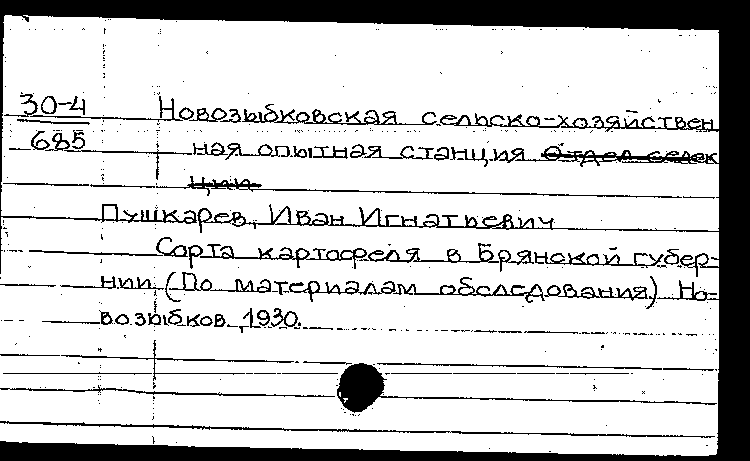 30-4 Новозыбковская сельско-хозяйствен
685 ная опытная станция Отдел селек
ции
Пушкарев, Иван Игнатьевич
Сорта картофеля в Брянской губер-
нии (По материалам обследования) Но-
возыбков, 1930.